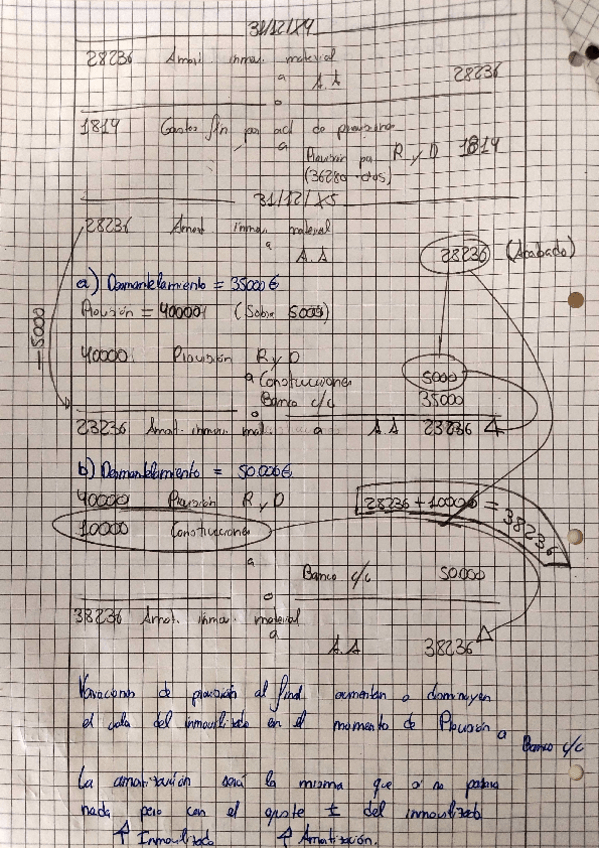 31/12/X4
28236 Amort. inmov. material
a
A.A 28236
1814 Gastos fin por act. de provisiones
a
Provisión pa R y D 1814
(36280 · dos)
31/12/X5
28236 Amort inmov. material
a
A.A 28236 (Acabado)
a) Desmantelamiento = 35000€
Provisión = 40000 (Sobra 5000)
- 5000
40000 Provisión R y D
a Construcciones 5000
Banco c/c 35000
23236 Amort. inmov. mat. a A.A 23236
b) Desmantelamiento = 50.000€
40000 Provisión R y D
28236 + 10000 = 38236
10000 Construcciones
a
Banco c/c 50.000
38236 Amort. inmov. material
a
A.A 38236
Variaciones de provisión al final aumentan o dominuyen
el valor del inmovilizado en el momento de Provisión a Banco c/c
La amortización será la misma que si no pasara
nada pero con el ajuste ± del inmovilizado
↑ Inmovilizado ↑ Amortización.